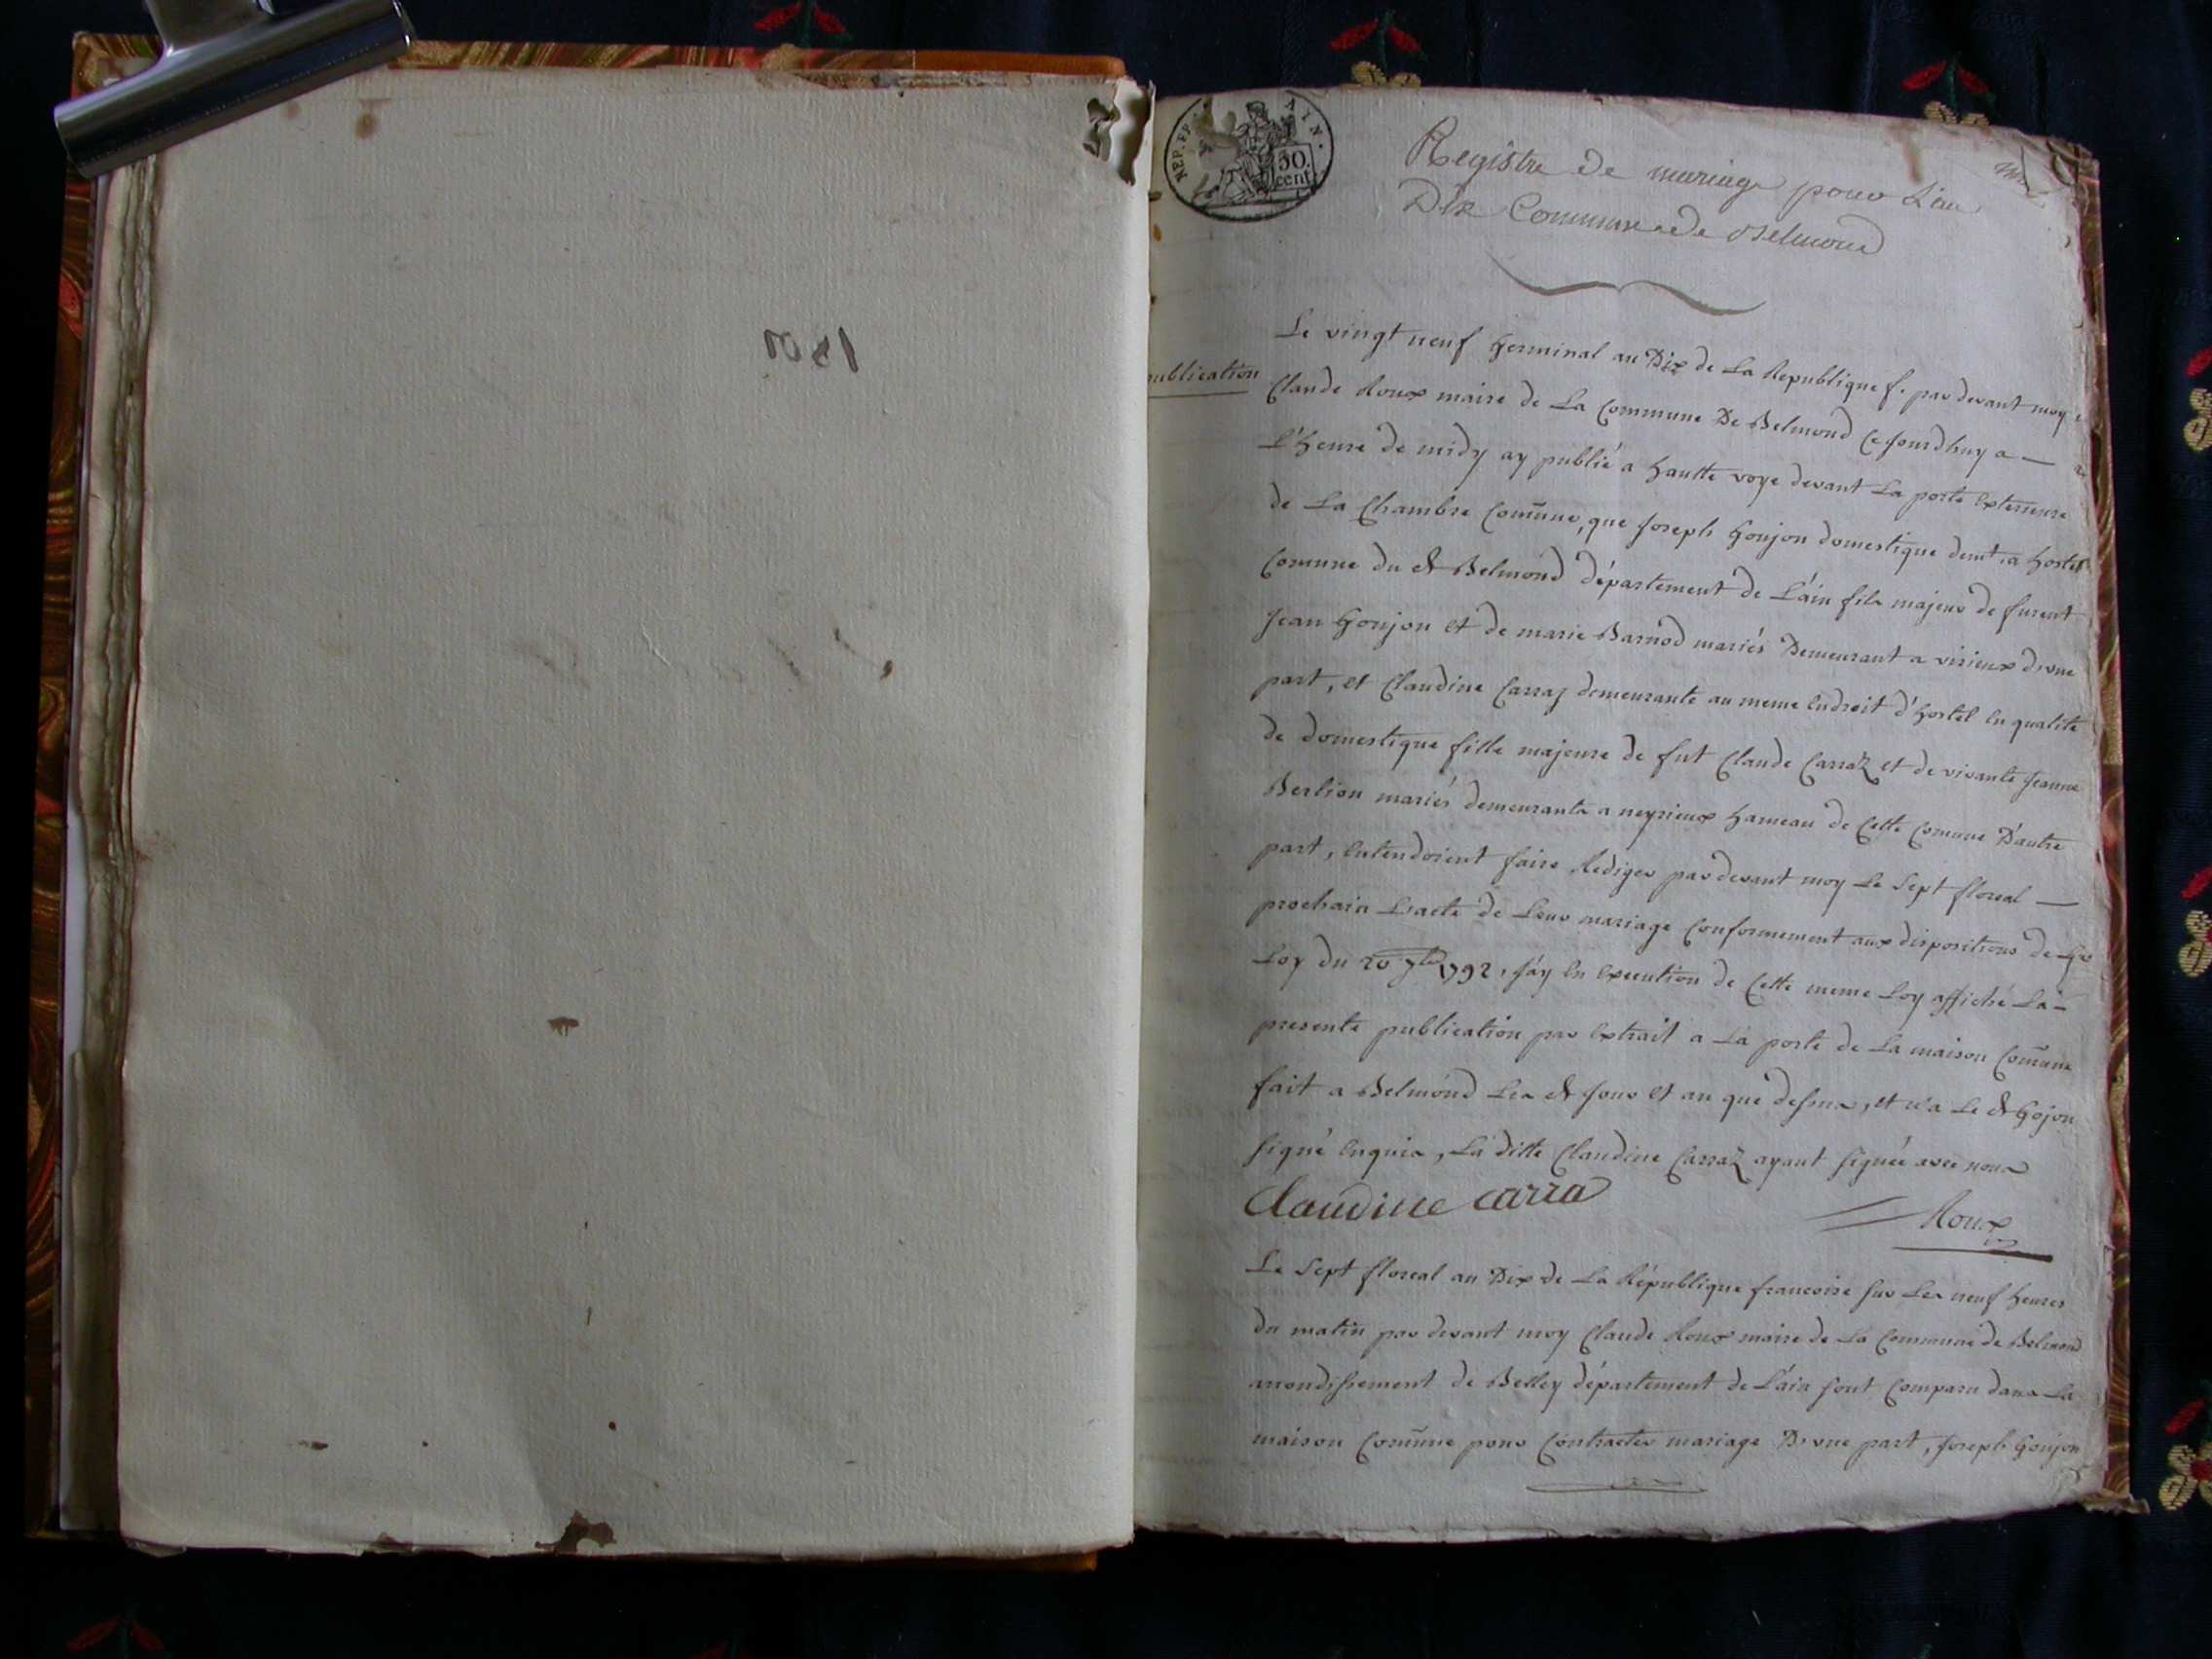 RÉP. FR.
AIN.
50.
cent
Registre de mariage pour L'an
Dix Commune de Belmond
Le vingt neuf Germinal an Dix de La Republique f. par devant moy
publication
Claude Roux maire de La Commune De Belmond Cejourdhuy a —
L'heure de midy ay publié a hautte voye devant La porte Exterieure
de La Chambre Com̃une, que Joseph Goujon domestique demt. a hostel
Comune du dt Belmond département de L'ain fils majeur de furent
Jean Goujon et de marie Barnod mariés Demeurant a virieux d'une
part, et Claudine Carraz demeurante au meme Endroit d'hostel En qualité
de domestique fille majeure de fut Claude Carraz et de vivante Jeanne
Berlion mariés demeurants a neyrieux hameau de Cette Comune D'autre
part, Entendoient faire Rediger par devant moy Le Sept floreal —
prochain L'acte de Leur mariage Conformement aux dispositions de La
Loy du 20 7bre 1792, J'ay En Execution de Cette meme Loy affiché La -
presente publication par Extrait a La porte de La maison Com̃une
fait a Belmond Les dt Jour et an que dessus, et n'a Le dt Gojon
signé Enquis, La ditte Claudine Carraz ayant signée avec nous
Claudine carra
Roux
Le Sept floreal an Dix de La République francoise sur Les neuf heures
du matin par devant moy Claude Roux maire de La Commune de Belmond
arrondissement de Belley département de L'ain sont Comparu dans La
maison Com̃une pour Contracter mariage D'une part, Joseph Goujon